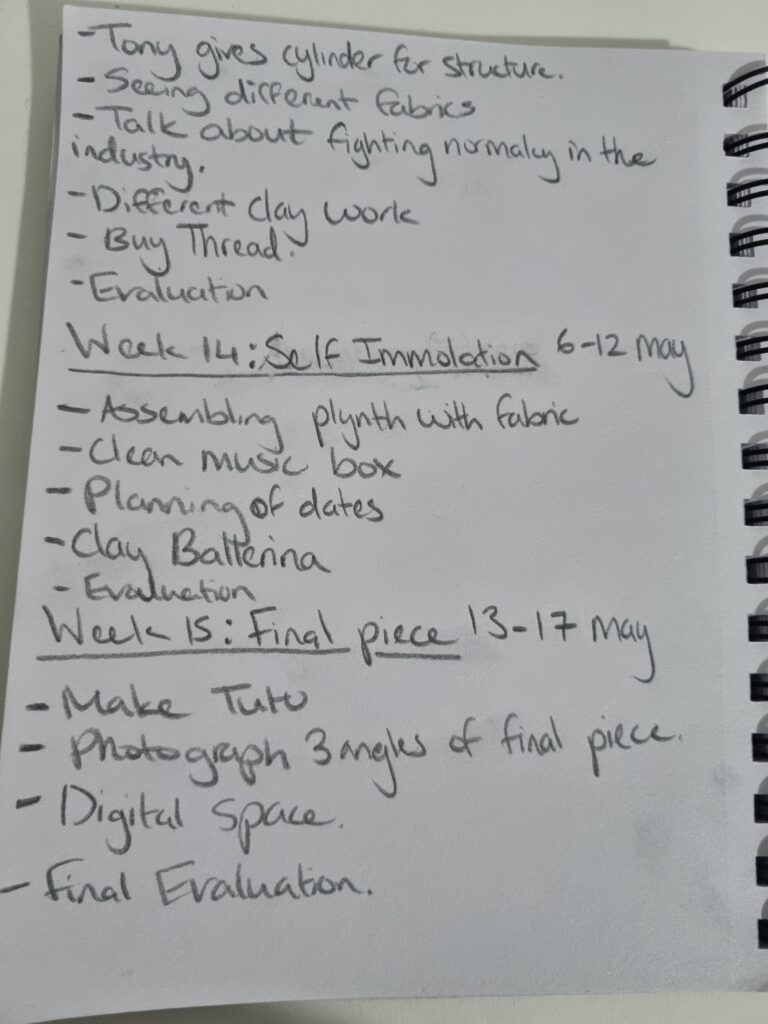 -Tony gives cylinder for structure.
- Seeing different fabrics
- Talk about fighting normalcy in the
industry.
- Different clay work
- Buy Thread.
- Evaluation
Week 14: Self Immolation 6-12 May
- Assembling plynth with fabric
- Clean music box
- Planning of dates
- Clay Ballerina
- Evaluation
Week 15: Final piece 13-17 May
- Make Tutu
- Photograph 3 angles of final piece.
- Digital Space.
- Final Evaluation.